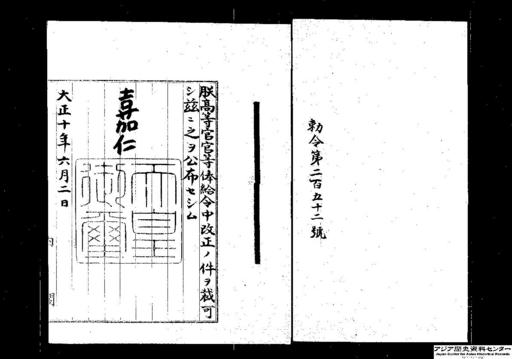 勅令第二百五十二號
朕高等官官等俸給令中改正ノ件ヲ裁可
シ茲ニ之ヲ公布セシム
嘉仁
天皇御璽
大正十年六月二日
内閣
アジア歴史資料センター
Japan Center for Asian Historical Records